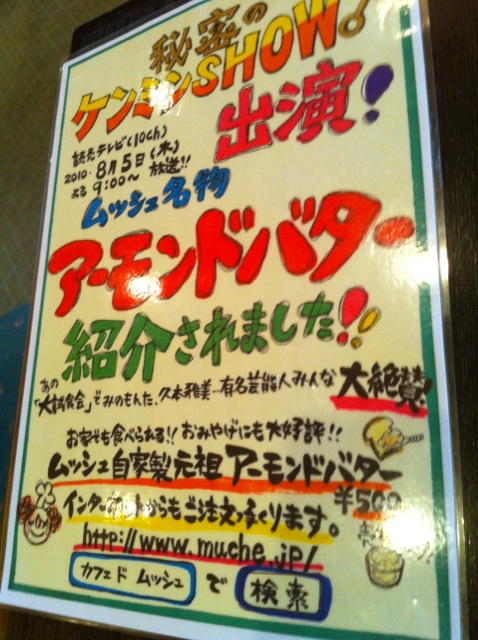 秘密の
ケンミンSHOW!
出演!
読売テレビ(10ch)
2010.8月5日(木)
よる9:00~放送!!
ムッシュ名物
アーモンドバター
紹介されました!!
あの
「大試食会」でみのもんた、久本雅美…有名芸能人みんな大絶賛
お家でも食べられる!!おみやげにも大好評!!
ムッシュ自家製元祖アーモンドバター
¥500
インターネットからもご注文承ります。
http://www.muche.jp/
カフェド ムッシュ で 検索